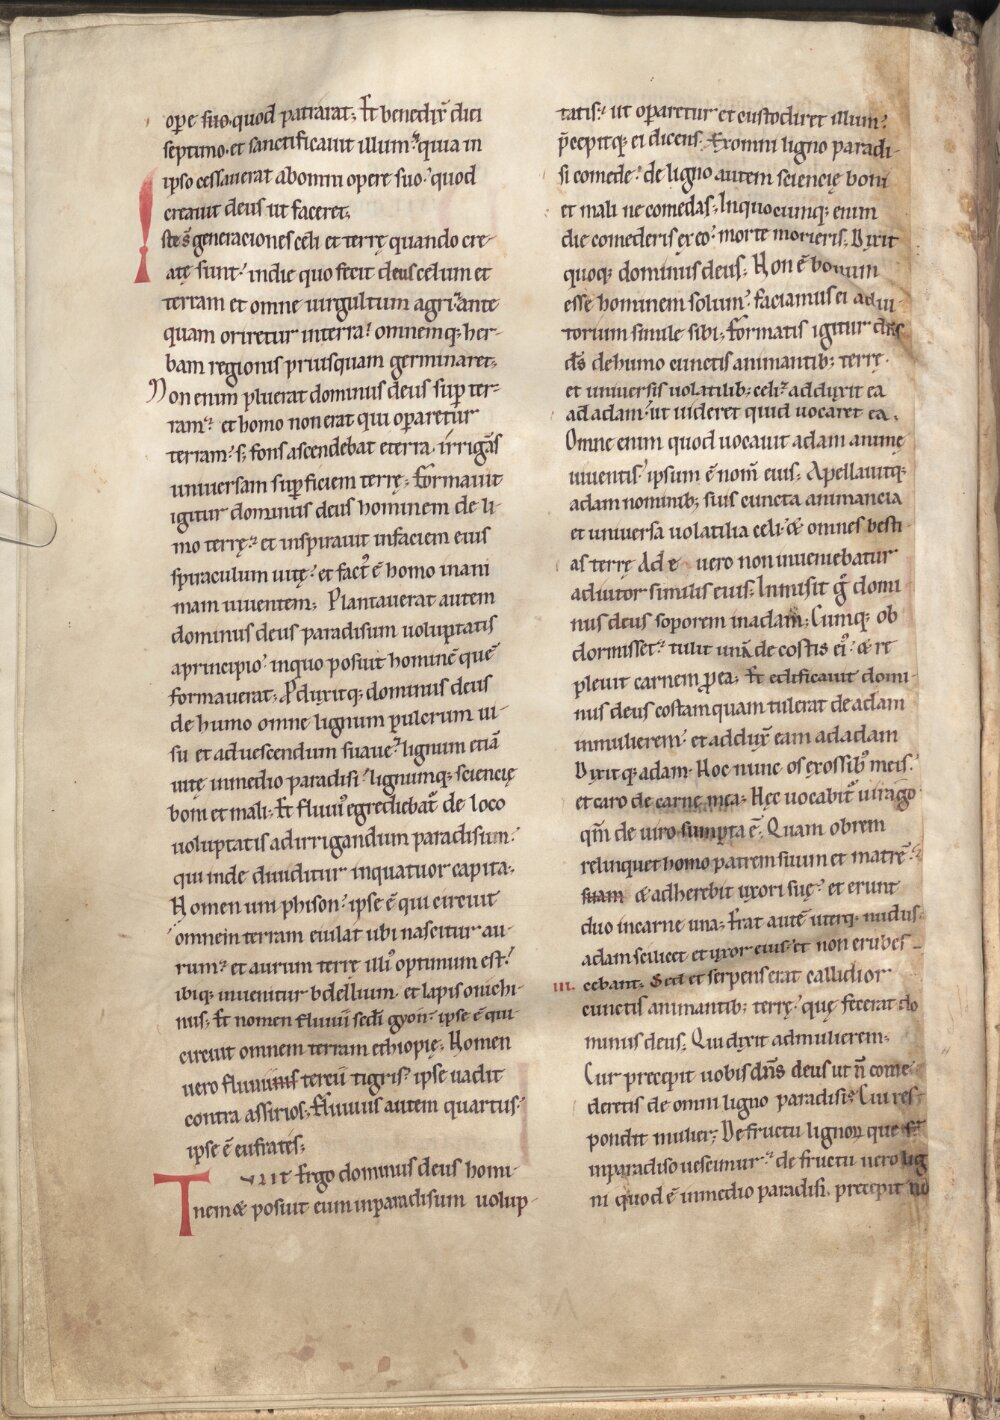 ope suo quod patrarat; Et benedix̄ diei
septimo. et sanctificauit illum? quia in
ipso cessauerat abomni opere suo. quod
creauit deus ut faceret;
Iste s̄ generaciones celi et terrę quando cre-
atę sunt. indie quo fecit deus celum et
terram et omne uirgultum agri. ante
quam oriretur interra. omnemq; her-
bam regionis priusquam germinaret;
Non enim pluerat dominus deus sup ter-
ram. et homo non erat qui oparetur
terram. s; fons ascendebat eterra. irrigās
uniuersam supficiem terrę; Formauit
igitur dominus deus hominem de li-
mo terrę. et inspirauit infaciem eius
spiraculum uitę. et fact' ē homo inani
mam uiuentem; Plantauerat autem
dominus deus paradisum uoluptatis
aprincipio. inquo posuit hominē quē
formauerat; Pduxitq; dominus deus
de humo omne lignum pulcrum ui-
su et aduescendum suaue. lignum etiā
uitę inmedio paradisi. lignumq; scientię
boni et mali; Et fluui' egrediebat̄ de loco
uoluptatis adirrigandum paradisum.
qui inde diuiditur inquatuor capita;
Nomen uni phison. ipse ē qui circuit
omnem terram euilat ubi nascitur au-
rum. et aurum terrę illi' optimum est.
ibiq; inuenitur bdellium. et lapis onichi-
nus; Et nomen fluuii sēdi gyon. ipse ē qui
circuit omnem terram ethiopię; Nomen
uero fluuius terciī tigris. ipse uadit
contra assirios; Fluuius autem quartus.
ipse ē eufrates;
Tulit Ergo dominus deus homi-
nem & posuit eum inparadisum uolup-
tatis. ut oparetur et custodiret illum.
p̄cepitq; ei dicens. Exomni ligno paradi-
si comede. de ligno autem scientię boni
et mali ne comedas; Inquocumq; enim
die comederis ex eo. morte morieris. Dixit
quoq; dominus deus; Non ē bonum
esse hominem solum. faciamus ei adiu-
torium simile sibi; Formatis igitur dn̄s
ds̄ dehumo cunctis animantib; terrę.
et uniuersis uolatilib; celi. adduxit ea
ad adam. ut uideret quid uocaret ea.
Omne enim quod uocauit adam animę
uiuentis. ipsum ē nom̄ eius; Apellauitq;
adam nominib; suis cuncta animancia
et uniuersa uolatilia celi. & omnes besti-
as terrę Ade uero non inueniebatur
adiutor similis eius; Inmisit g̊ domi-
nus deus soporem inadam; Cumq; ob
dormisset. tulit unā de costis ei'. & re
pleuit carnem p ea; Et edificauit domi-
nus deus costam quam tulerat de adam
inmulierem. et addux̄ eam adadam
Dixitq; adam. Hoc nunc os exossib' meis.
et caro de carne mea; Hęc uocabit̄ uirago
qm̄ de uiro sumpta ē; Quam obrem
relinquet homo patrem suum et matrē
suam & adherebit uxori suę. et erunt
duo incarne una; Erat autē uterq; nudus
adam scilicet et uxor eius. et non erubes-
III. cebant; Sed et serpens erat callidior
cunctis animantib; terrę. quę fecerat do
minus deus; Qui dixit admulierem.
Cur precepit uobis dn̄s deus ut n̄ come-
deretis de omni ligno paradisi; Cui res-
pondit mulier; De fructu lignoꝝ que st̄
inparadiso uescimur. de fructu uero lig
ni quod ē inmedio paradisi. precepit no